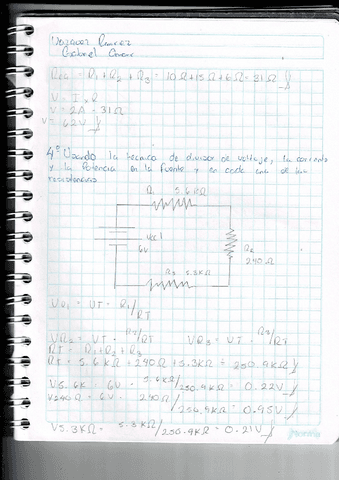 Vazquez Ramirez
Gabriel Omar
Req = R1 + R2 + R3 = 10Ω + 15Ω + 6Ω = 31Ω
V = I x R
V = 2A · 31Ω
V = 62V
4° Usando la tecnica de divisor de voltaje, la corriente
y la potencia en la fuente y en cada una de las
resistencias
R1 5.6KΩ
Vcc1
6V
R2
240Ω
R3 5.3KΩ
VR1 = VT · R1/RT
VR2 = VT · R2/RT VR3 = VT · R3/RT
RT = R1+R2+R3
Rt = 5.6KΩ + 240Ω + 5.3KΩ = 250.9KΩ
V5.6K = 6V · 5.6KΩ/250.9KΩ = 0.22V
V240Ω = 6V · 240Ω/250.9KΩ = 0.95V
V5.3KΩ = 5.3KΩ/250.9KΩ = 0.21V